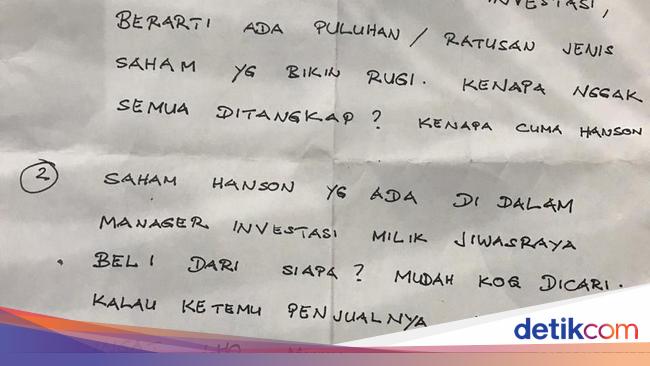 INVESTASI,
BERARTI ADA PULUHAN / RATUSAN JENIS
SAHAM YG BIKIN RUGI. KENAPA NGGAK
SEMUA DITANGKAP? KENAPA CUMA HANSON
2 SAHAM HANSON YG ADA DI DALAM
MANAGER INVESTASI MILIK JIWASRAYA
BELI DARI SIAPA? MUDAH KOG DICARI.
KALAU KETEMU PENJUALNYA
detikcom